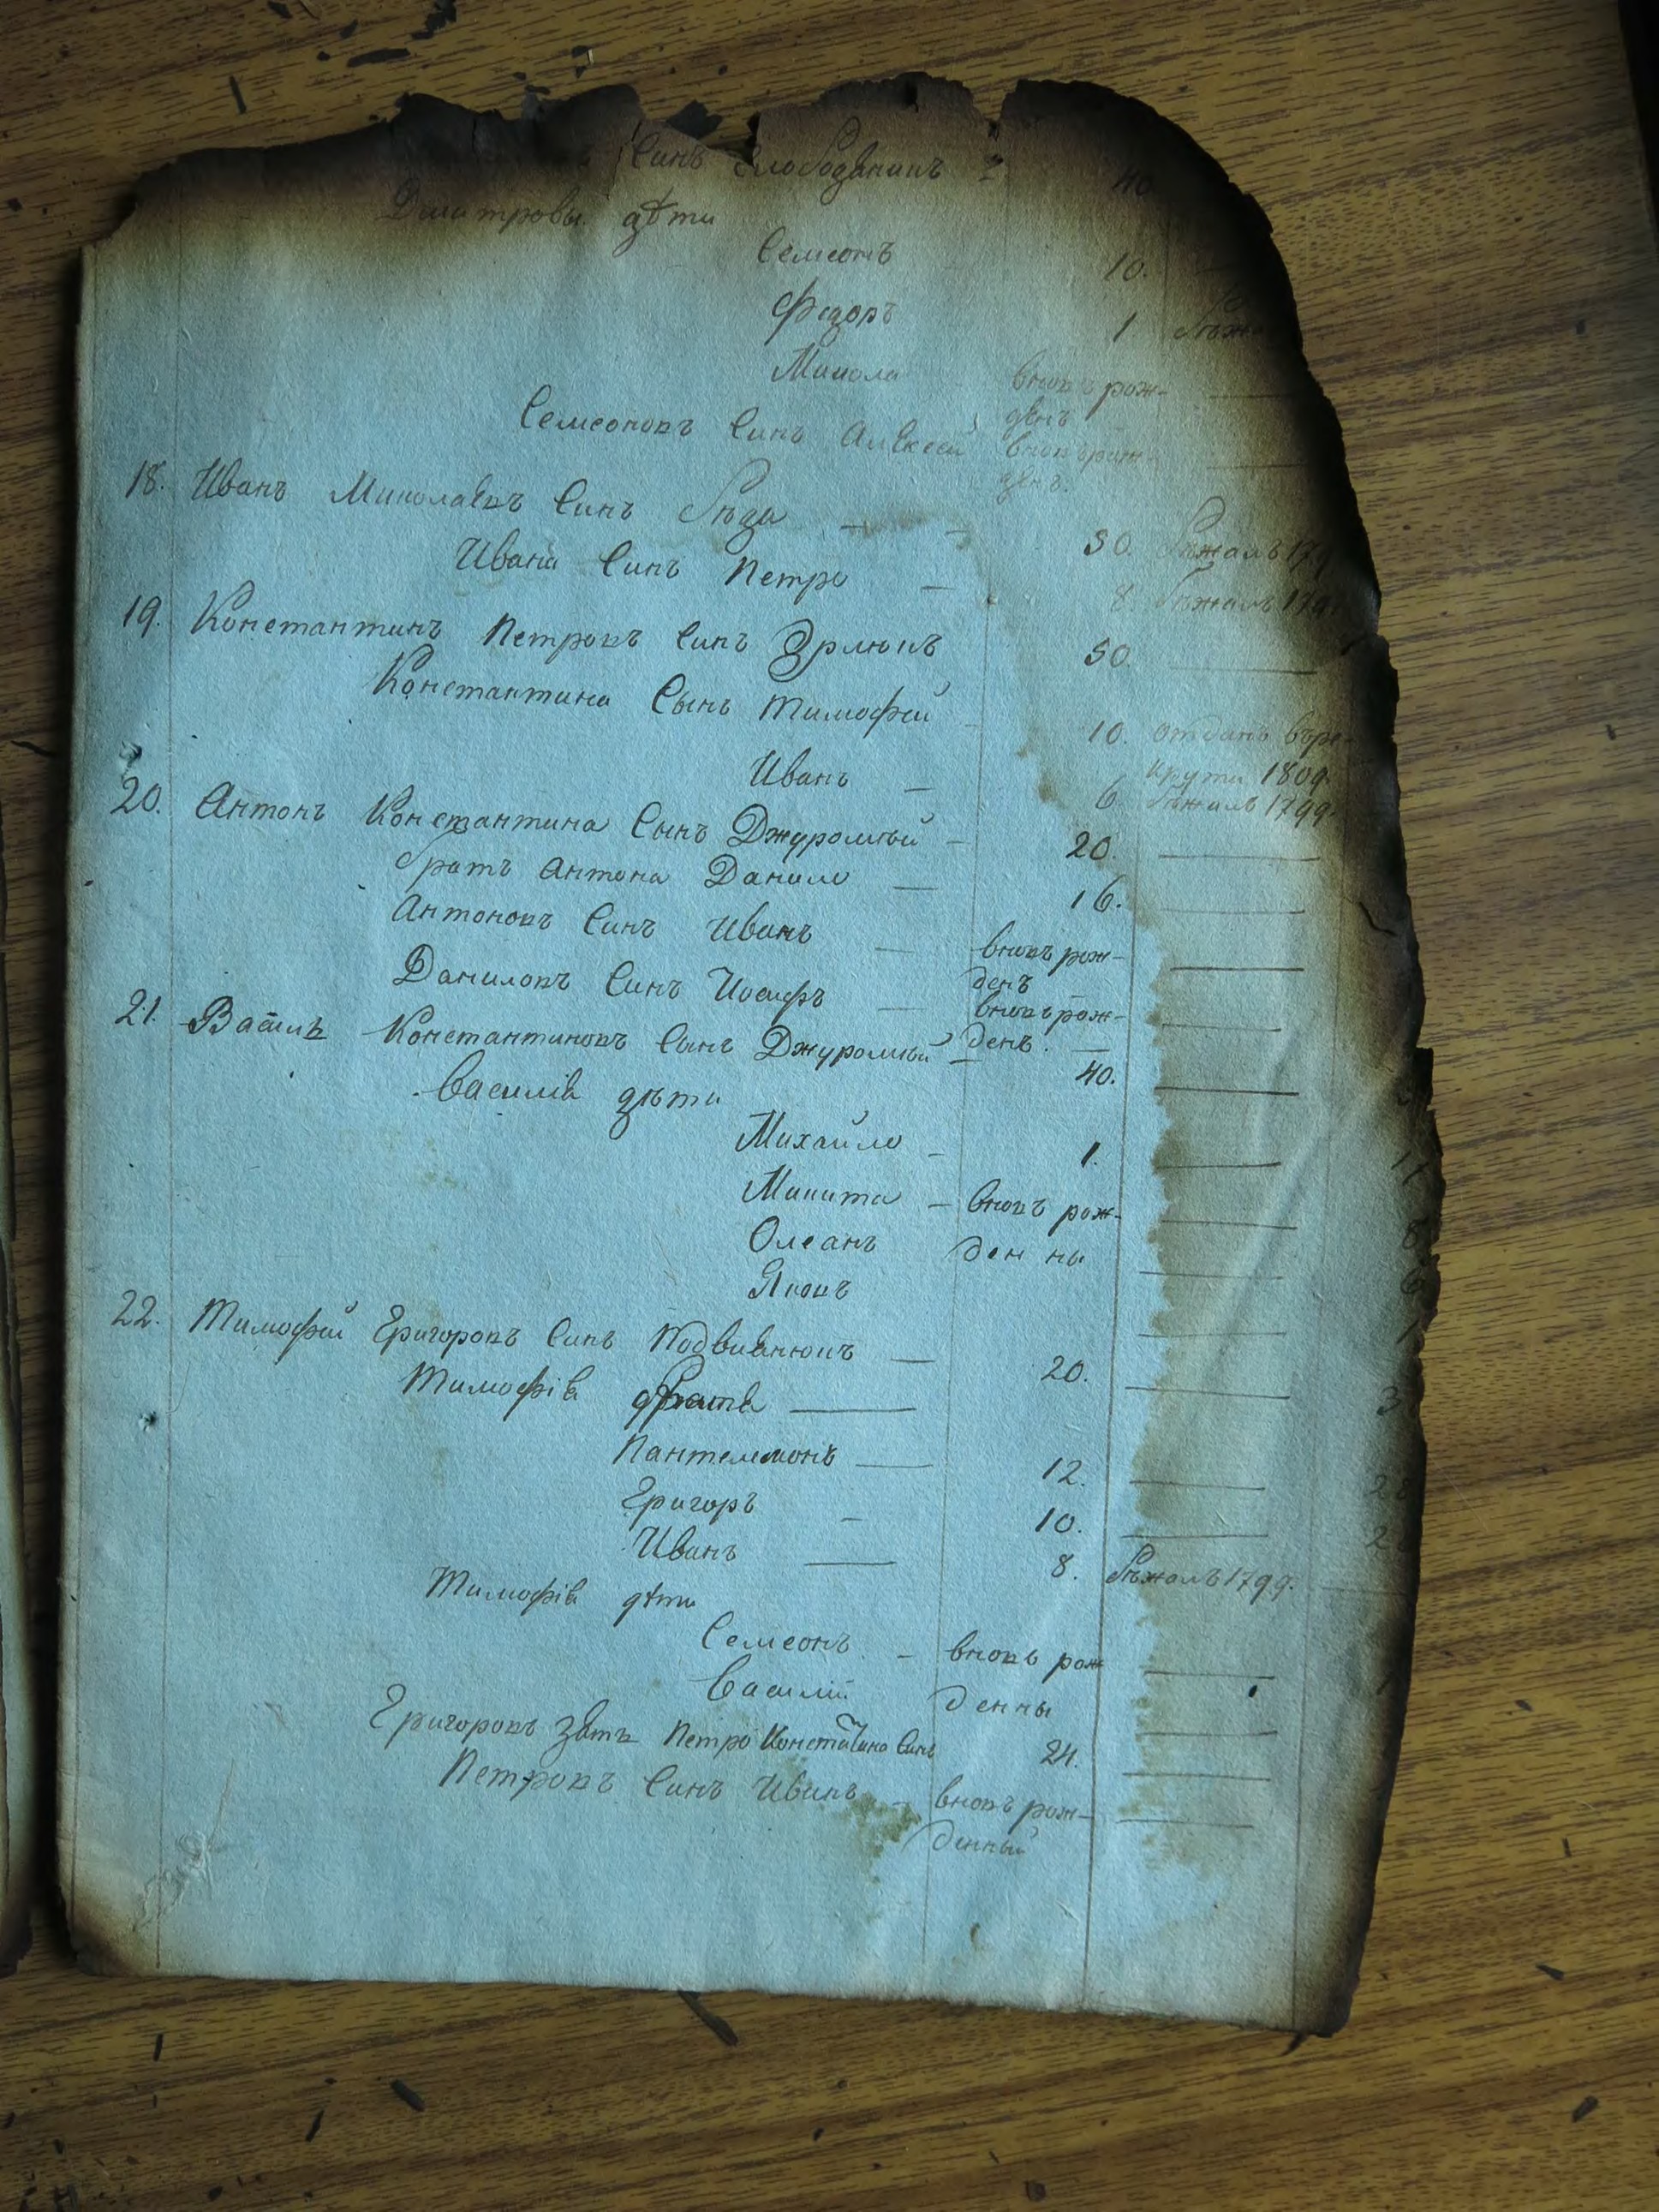 Синъ Слободянинъ 40
Дмитровы дѣти
Семеонъ 10.
Федоръ 1 бѣж
Микола вновъ рож-
денъ
Семеоновъ Синъ Алексей вновъ рож-
денъ.
18. Иванъ Миколаевъ Синъ — — 30. бѣжалъ 179
Ивана Синъ Петро — 8. бѣжалъ 179
19. Константинъ Петровъ Синъ 50. —
Константина Сынъ Тимофей 10. отданъ въре-
круты 1809.
Иванъ — 6. бѣжалъ 1799.
20. Антонъ Константина Сынъ Джуромъй — 20. —
братъ Антона Данило — 16. —
Антоновъ Синъ Иванъ — вновъ рож- —
денъ
Даниловъ Синъ Иосифъ — вновъ рож- —
денъ. —
21. Василь Константиновъ Сынъ Джуромъй — 40. —
Василія дѣти
Михайло — 1. —
Микита — вновъ рож- —
Олеанъ денны —
Яковъ —
22. Тимофей Григоровъ Синъ — 20. —
Тимофія брата —
Пантелемонъ — 12. —
Григоръ — 10. —
Иванъ — 8. бѣжалъ 1799. —
Тимофія дѣти
Семеонъ — вновъ рож —
Василій денны —
Григоровъ зять Петро Константина Синъ 24. —
Петровъ Синъ Иванъ — вновъ рож- —
денный